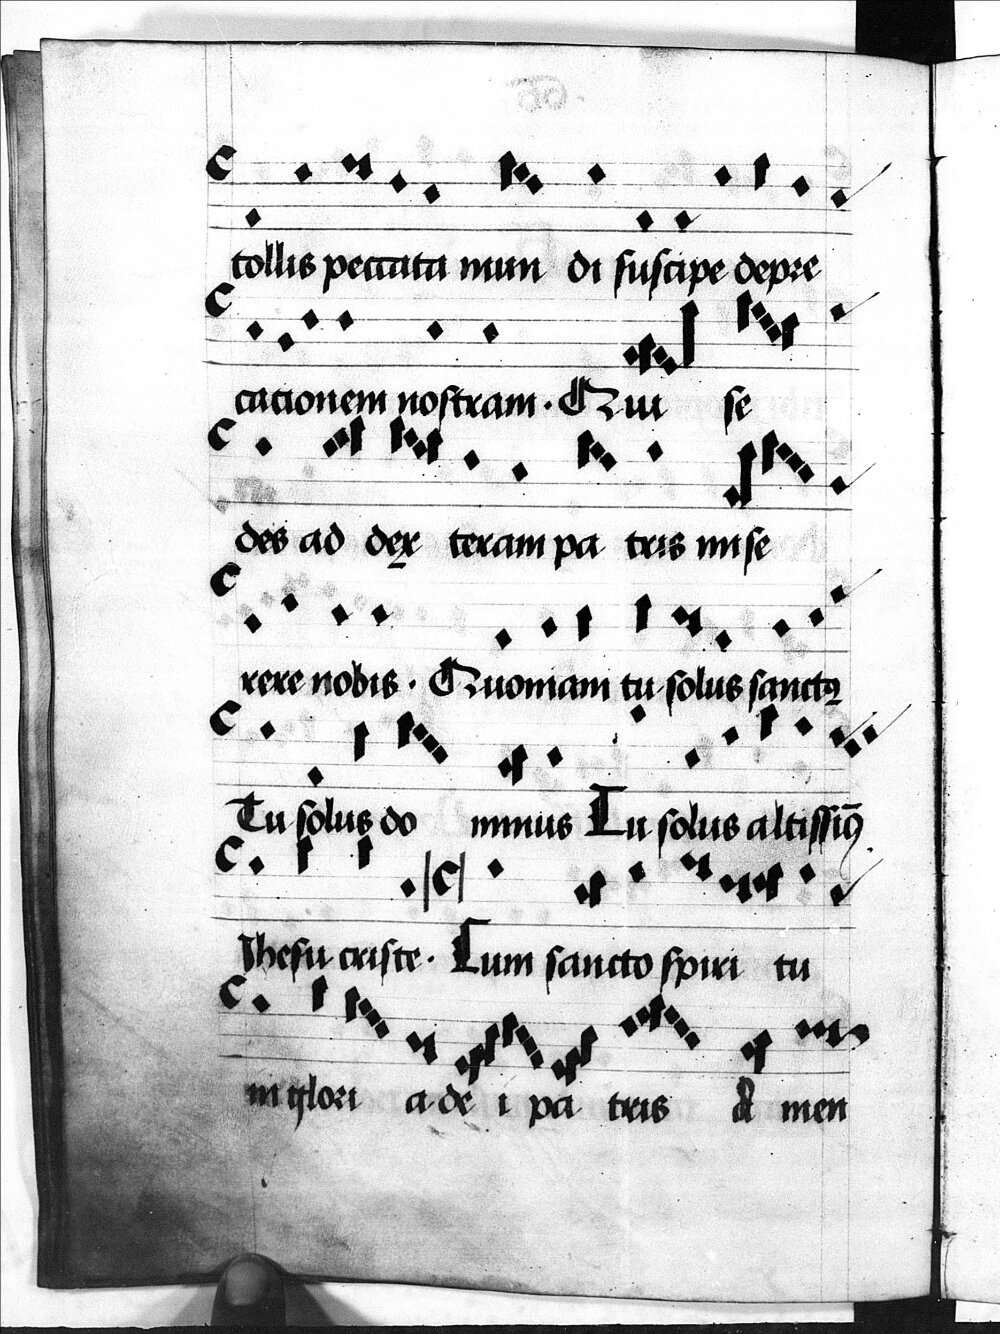 tollis peccata mun di suscipe depre
cationem nostram · Qui se
des ad dex teram pa tris mise
rere nobis · Quoniam tu solus sanctꝰ
Tu solus do minus Tu solus altissiꝰ
Ihesu criste · Cum sancto spiri tu
in glori a de i pa tris A men